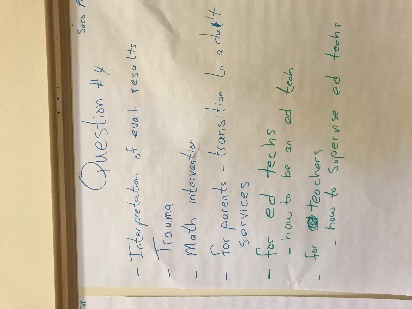 Question #4
- Interpretation of eval results
- Trauma
- Math intervention
- for parents - transition to adult
services
- for ed techs
- how to be an ed tech
- for teachers
- how to supervise ed techs